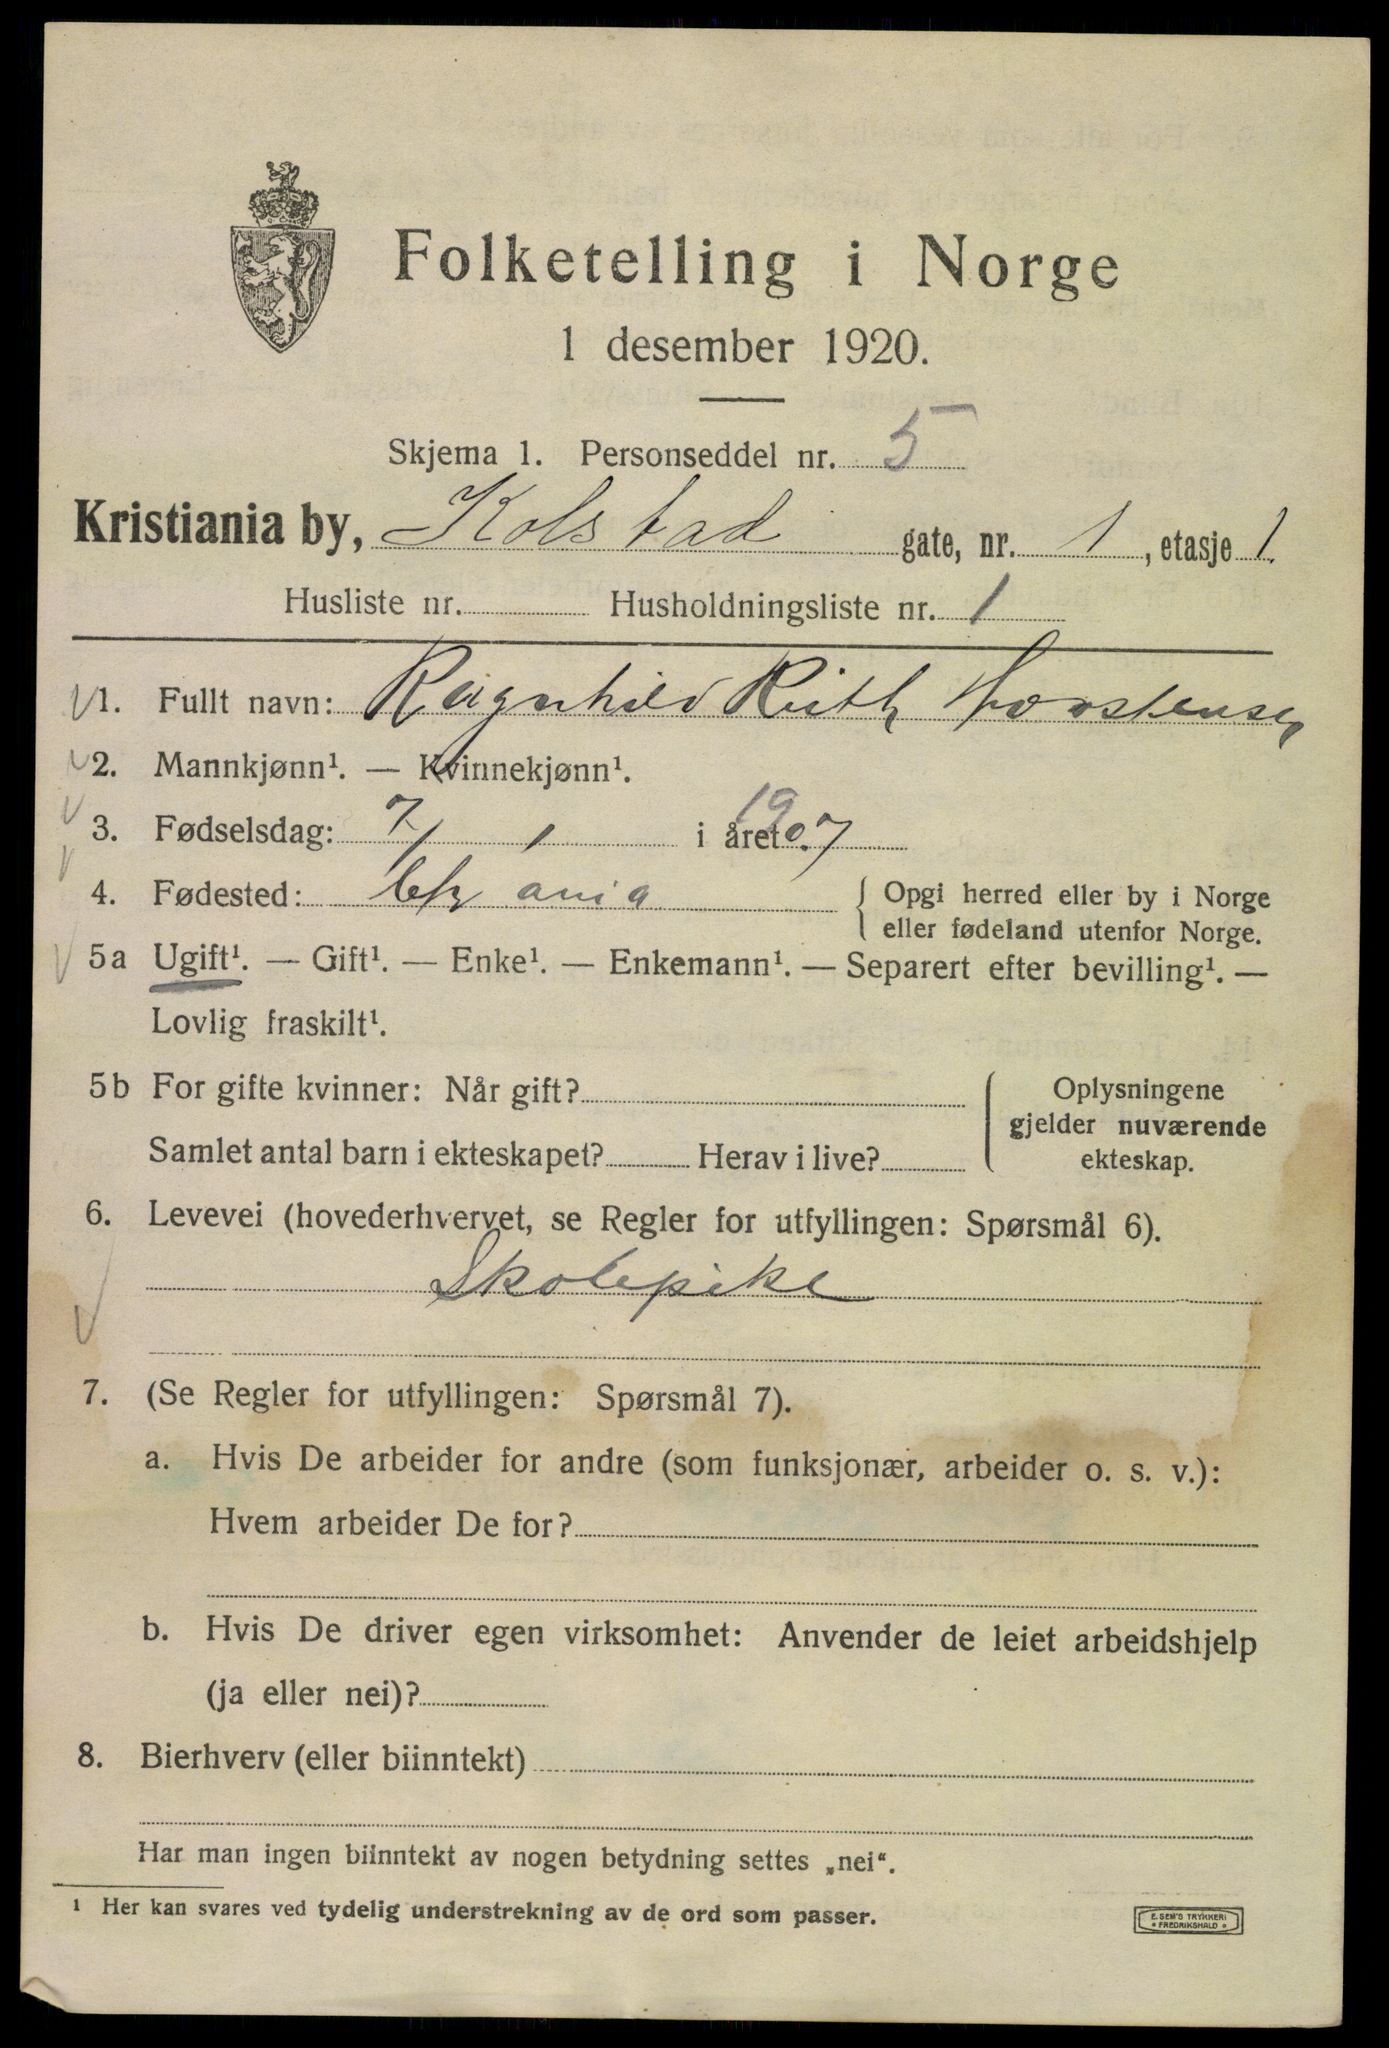 Folketelling i Norge
1 desember 1920.
Skjema 1. Personseddel nr. 5
Kristiania by, Kolstad gate, nr. 1, etasje 1
Husliste nr. Husholdningsliste nr. 1
1. Fullt navn: Ragnhild Ruth Torstensen
2. Mannkjønn¹. — Kvinnekjønn¹.
3. Fødselsdag: 7/1 i året 1907
4. Fødested: Chr ania { Opgi herred eller by i Norge
eller fødeland utenfor Norge.
5a Ugift¹. — Gift¹. — Enke¹. — Enkemann¹. — Separert efter bevilling¹. —
Lovlig fraskilt¹.
5b For gifte kvinner: Når gift? Oplysningene
gjelder nuværende
Samlet antal barn i ekteskapet? Herav i live? ekteskap.
6. Levevei (hovederhvervet, se Regler for utfyllingen: Spørsmål 6).
Skolepike
7. (Se Regler for utfyllingen: Spørsmål 7).
a. Hvis De arbeider for andre (som funksjonær, arbeider o. s. v.):
Hvem arbeider De for?
b. Hvis De driver egen virksomhet: Anvender de leiet arbeidshjelp
(ja eller nei)?
8. Bierhverv (eller biinntekt)
Har man ingen biinntekt av nogen betydning settes „nei“.
¹ Her kan svares ved tydelig understrekning av de ord som passer.
E. SEM'S TRYKKERI
* FREDRIKSHALD *